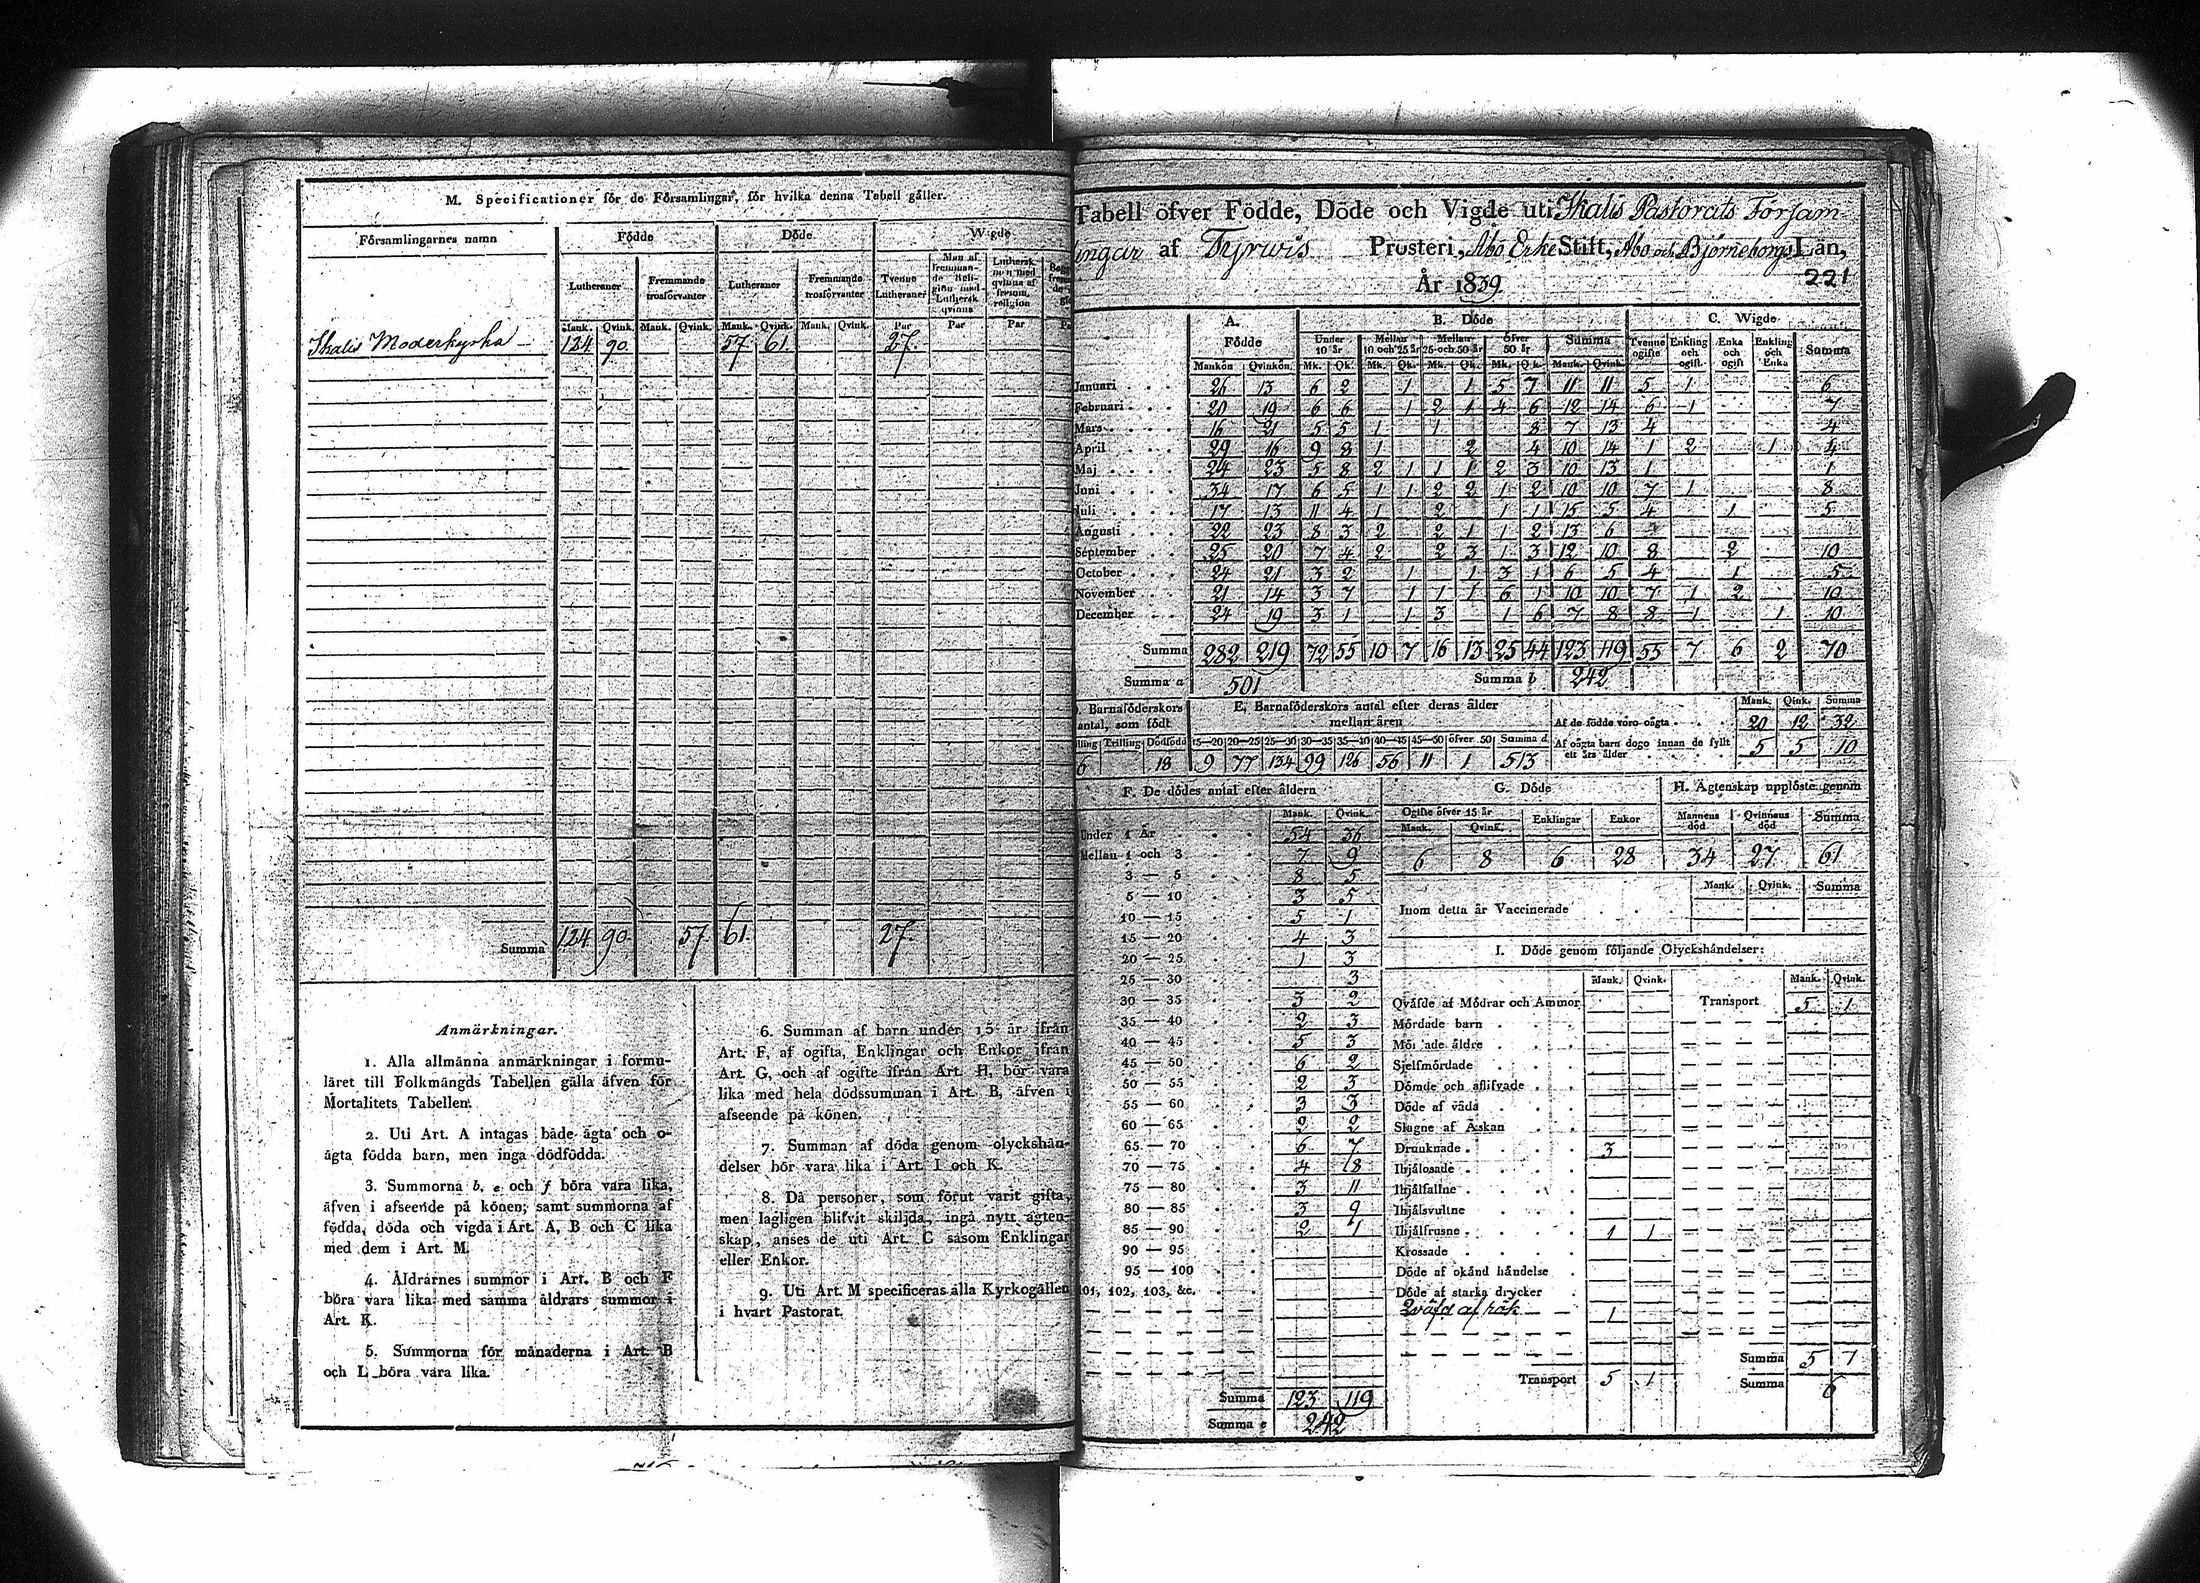 M. Specificationer för de Församlingar, för hvilka denna Tabell gäller.
Församlingarnes namn Födde Döde Wigde
Lutheraner Fremmande trosförvanter Lutheraner Fremmande trosförvanter Tvenne Lutheraner Man af fremmande Religion med Luthersk qvinna Luthersk man med qvinna af fremm. religion
Mank. Qvink. Mank. Qvink. Mank. Qvink. Mank. Qvink. Par Par Par
Ikalis Moderkyrka 124 90. 57. 61. 27.
Summa 124 90. 57. 61. 27.
Anmärkningar.
1. Alla allmänna anmärkningar i formu-
läret till Folkmängds Tabellen gälla äfven för
Mortalitets Tabellen.
2. Uti Art. A intagas både ägta och o-
ägta födda barn, men inga dödfödda.
3. Summorna b, e och f böra vara lika,
äfven i afseende på könen; samt summorna af
födda, döda och vigda i Art. A, B och C lika
med dem i Art. M.
4. Åldrarnes summor i Art. B och F
böra vara lika med samma åldrars summor i
Art. K.
5. Summorna för månaderna i Art. B
och L böra vara lika.
6. Summan af barn under 15 år ifrån
Art. F, af ogifta, Enklingar och Enkor ifrån
Art. G, och af ogifte ifrån Art. H, bör vara
lika med hela dödssumman i Art. B, äfven i
afseende på könen.
7. Summan af döda genom olyckshän-
delser bör vara lika i Art. I och K.
8. Då personer, som förut varit gifta,
men lagligen blifvit skiljda, ingå nytt ägten-
skap, anses de uti Art. C såsom Enklingar
eller Enkor.
9. Uti Art. M specificeras alla Kyrkogällen
i hvart Pastorat.
Tabell öfver Födde, Döde och Vigde uti Ikalis Pastorats Församlingar af Tyrwis Prosteri, Åbo Erke Stift, Åbo och Björneborgs Län,
År 1839 221
A. Födde B. Döde C. Wigde
Under 10 år Mellan 10 och 25 år Mellan 25 och 50 år Öfver 50 år Summa Tvenne ogifte Enkling och ogift Enka och ogift Enkling och Enka Summa
Mankön Qvinkön Mk. Qk. Mk. Qk. Mk. Qk. Mk. Qk. Mank. Qvink.
Januari 26 13 6 2 1 1 5 7 11 11 5 1 6
Februari 20 19 6 6 1 2 1 4 6 12 14 6 1 7
Mars 16 21 5 5 1 1 8 7 13 4 4
April 29 16 9 8 1 2 4 10 14 1 2 1 4
Maj 24 23 5 8 2 1 1 1 2 3 10 13 1 1
Juni 34 17 6 5 1 1 2 2 1 2 10 10 7 1 8
Juli 17 13 11 4 1 2 1 1 15 5 4 1 5
Augusti 22 23 8 3 2 2 1 1 2 13 6
September 25 20 7 4 2 2 3 1 3 12 10 8 2 10
October 24 21 3 2 1 1 3 1 6 5 4 1 5
November 21 14 3 7 1 1 1 6 1 10 10 7 1 2 10
December 24 19 3 1 1 3 1 6 7 8 8 1 1 10
Summa 282 219 72 55 10 7 16 13 25 44 123 119 55 7 6 2 70
Summa a 501 Summa b 242
D. Barnaföderskors antal, som födt
Tvilling Trilling Dödfödd
6 18
E. Barnaföderskors antal efter deras ålder mellan åren
15—20 20—25 25—30 30—35 35—40 40—45 45—50 öfver 50 Summa d
9 77 134 99 126 56 11 1 513
Mank. Qink. Summa
Af de födde voro oägta 20 12 32
Af oägta barn dogo innan de fyllt ett års ålder 5 5 10
F. De dödes antal efter åldern
Mank. Qvink.
Under 1 År 54 36
Mellan 1 och 3 7 9
3 — 5 8 5
5 — 10 3 5
10 — 15 5 1
15 — 20 4 3
20 — 25 1 3
25 — 30 3
30 — 35 3 2
35 — 40 2 3
40 — 45 5 3
45 — 50 6 2
50 — 55 2 3
55 — 60 3 3
60 — 65 2 2
65 — 70 6 7
70 — 75 4 8
75 — 80 3 11
80 — 85 3 9
85 — 90 2 1
90 — 95
95 — 100
101, 102, 103, &c.
Summa 123 119
Summa e 242
G. Döde
Ogifte öfver 15 år Enklingar Enkor
Mank. Qvink.
6 8 6 28
H. Ägtenskap upplöste genom
Mannens död Qvinnans död Summa
34 27 61
Mank. Qvink. Summa
Inom detta år Vaccinerade
I. Döde genom följande Olyckshändelser:
Mank. Qvink. Mank. Qvink.
Qväfde af Mödrar och Ammor Transport 5 1
Mördade barn
Mördade äldre
Sjelfmördade
Dömde och aflifvade
Döde af våda
Slagne af Åskan
Drunknade 3
Ihjälosade
Ihjälfallne
Ihjälsvultne
Ihjälfrusne 1 1
Krossade
Döde af okänd händelse
Döde af starka drycker
Qväfd af rök 1
Summa 5 1
Transport 5 1 Summa 6